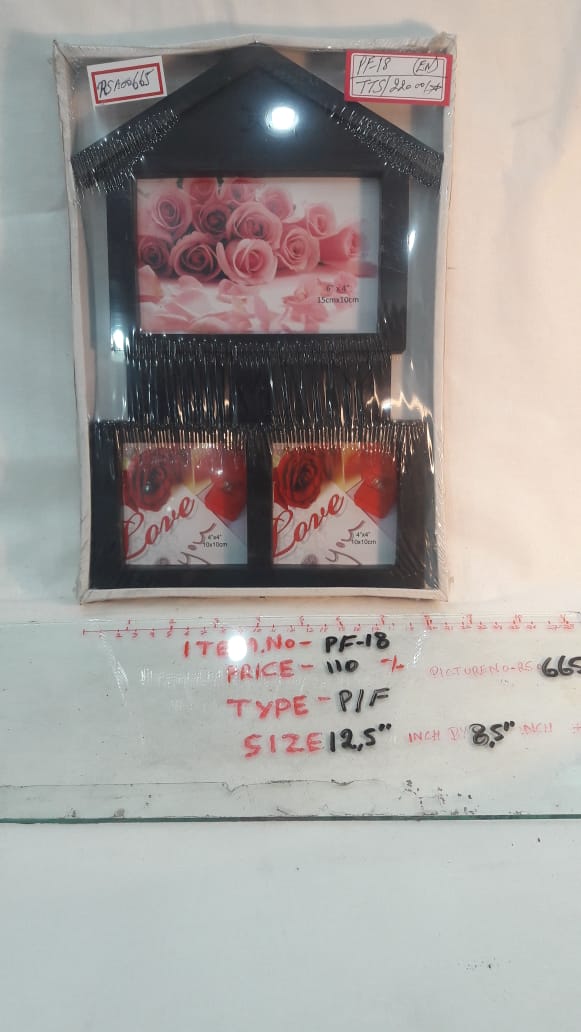 RSA00665
PF-18 (EN)
TTS/220.00/-
6"x4"
15cmx10cm
Love
you
4"x4"
10x10cm
Love
you
4"x4"
10x10cm
ITEM.No- PF-18
PRICE - 110 %
PICTURE NO-RS 665
TYPE - P/F
SIZE 12,5" INCH BY 8,5" INCH